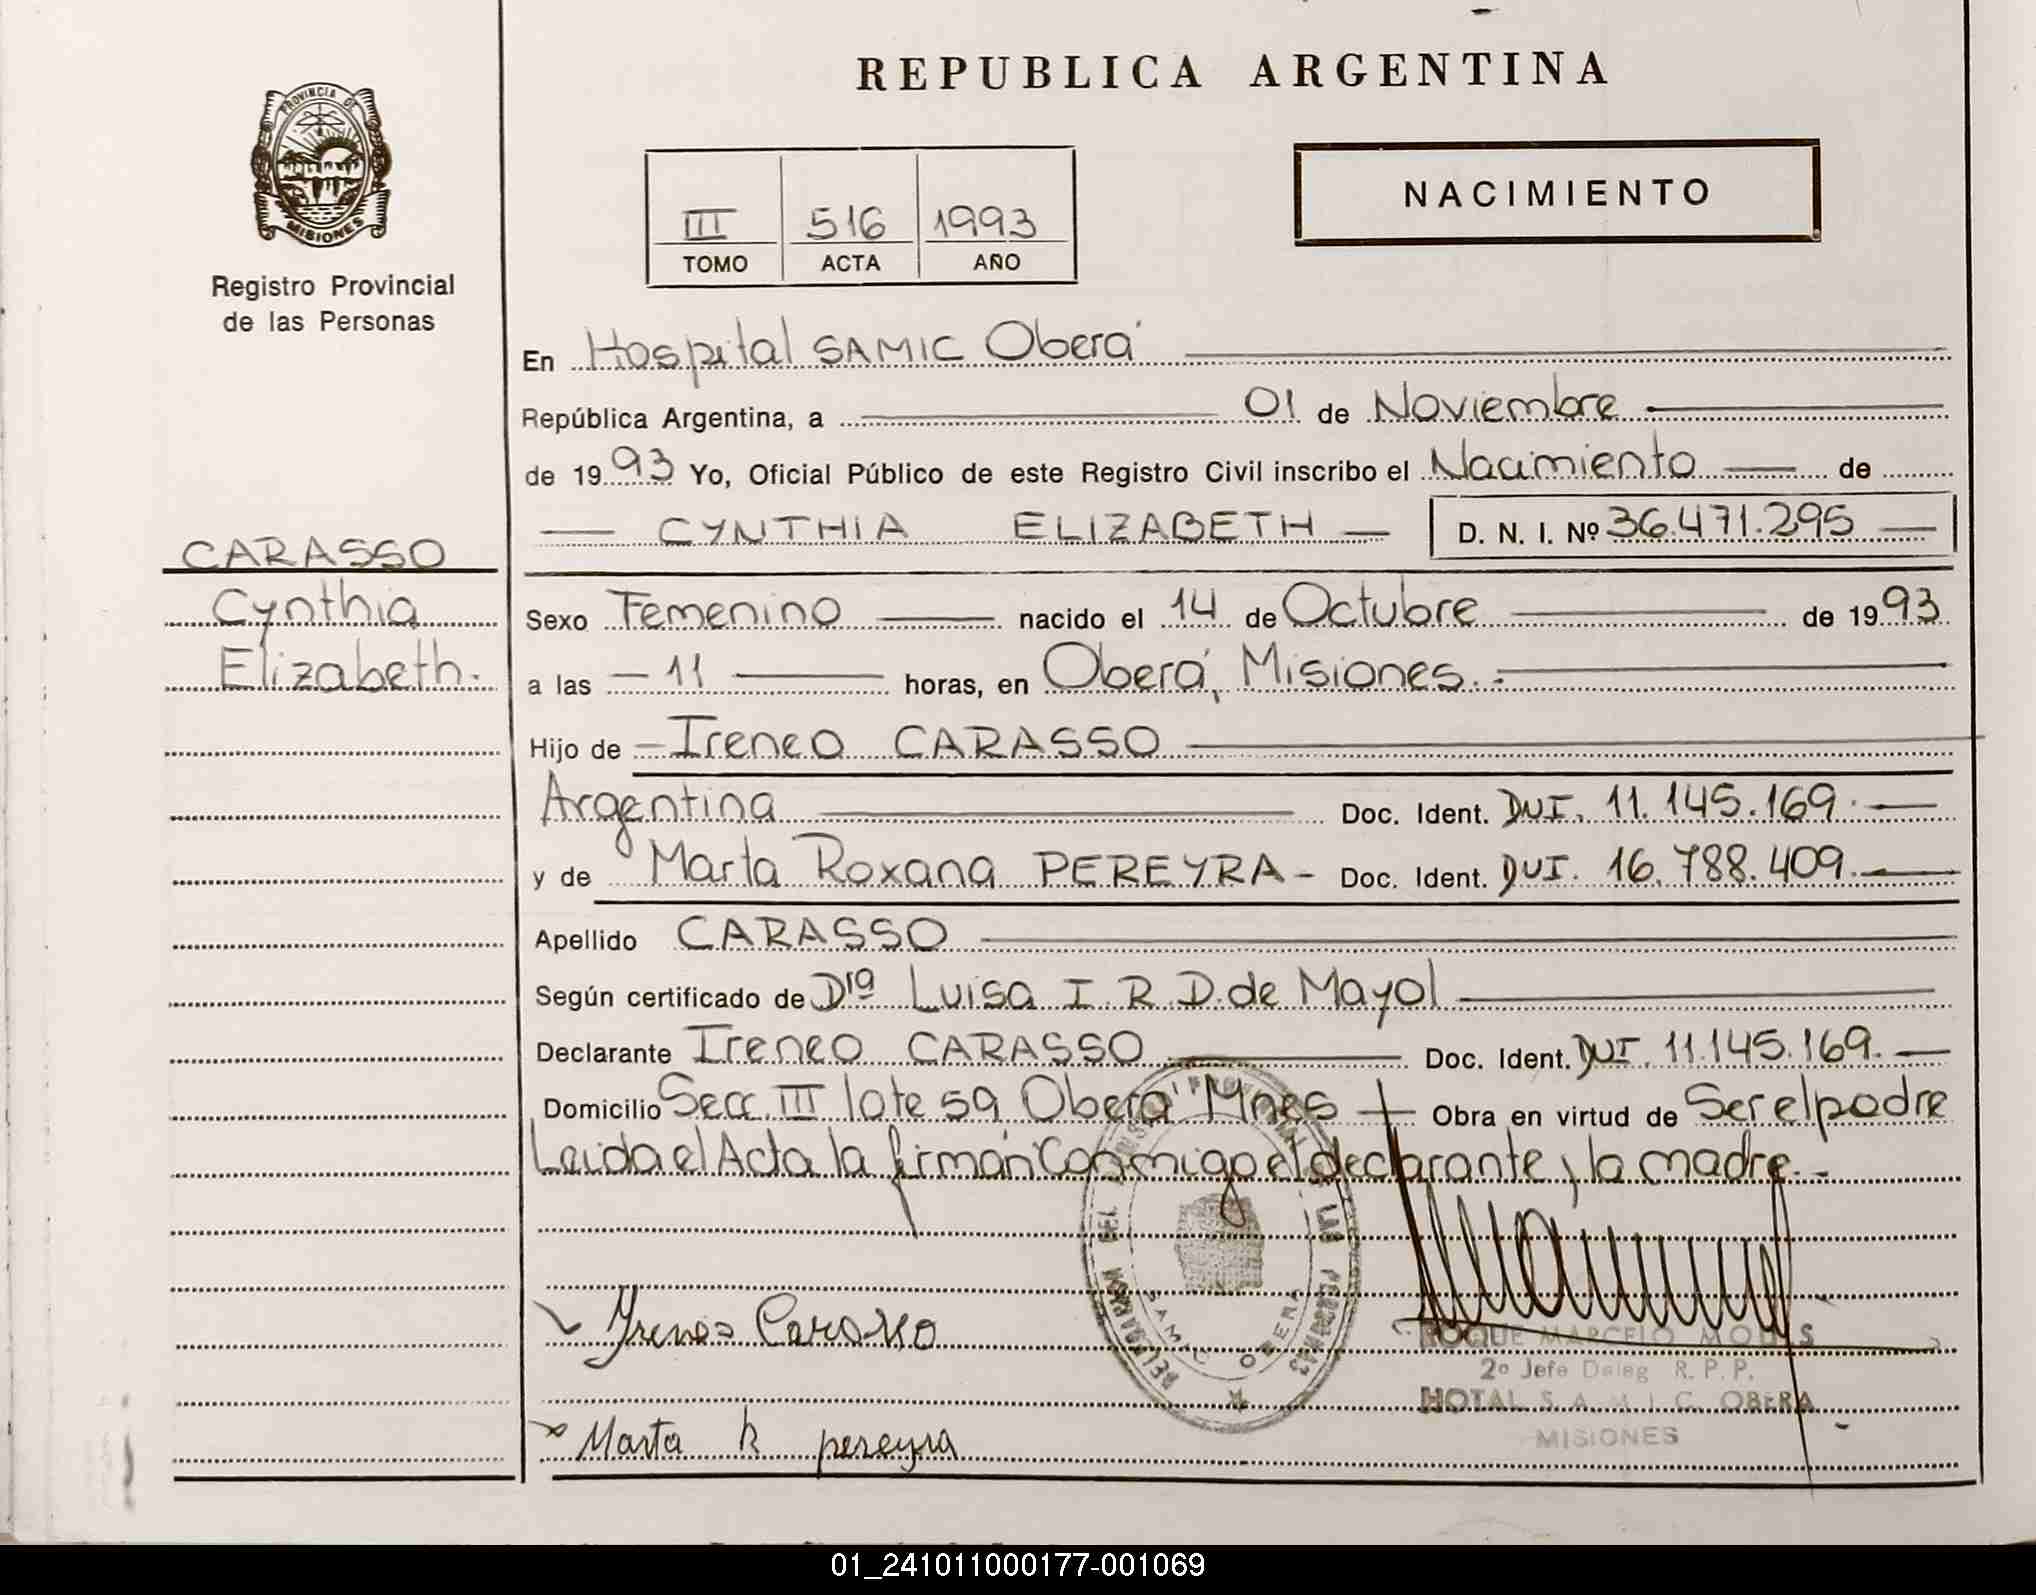 REPUBLICA ARGENTINA
PROVINCIA DE
MISIONES
Registro Provincial
de las Personas
III 516 1993
TOMO ACTA AÑO
NACIMIENTO
En Hospital SAMIC Oberá
República Argentina, a 01 de Noviembre
de 1993 Yo, Oficial Público de este Registro Civil inscribo el Nacimiento de
CYNTHIA ELIZABETH D. N. I. Nº 36.471.295
CARASSO
Cynthia
Elizabeth.
Sexo Femenino nacido el 14 de Octubre de 1993
a las 11 horas, en Oberá, Misiones.
Hijo de Ireneo CARASSO
Argentina Doc. Ident. DUI. 11.145.169.
y de Marta Roxana PEREYRA - Doc. Ident. DUI. 16.788.409.
Apellido CARASSO
Según certificado de Dra Luisa I. R. D. de Mayol
Declarante Ireneo CARASSO Doc. Ident. DUI. 11.145.169.
Domicilio Secc. III lote 59 Oberá Mnes Obra en virtud de Ser el padre
Leida el Acta la firmán Conmigo el declarante y la madre.
Marta R pereyra
SAMIC OBERA
ROQUE MARCELO
2º Jefe Deleg R. P. P.
HOTAL S. A. M. I. C. OBERA
MISIONES
01_241011000177-001069